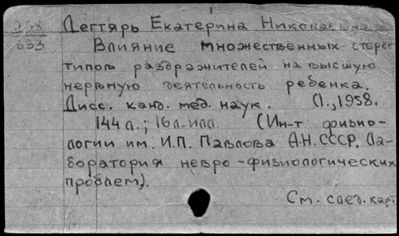 Дегтярь Екатерина Николаевна
Влияние множественных стерео
типов раздражителей на высшую
нервную деятельность ребенка.
Дисс. канд. мед. наук. Л., 1958.
144 л.; 16 л. илл. (Ин-т физио-
логии им. И.П. Павлова А.Н. СССР. Ла-
боратория невро-физиологических
проблем).
См. след. карт.